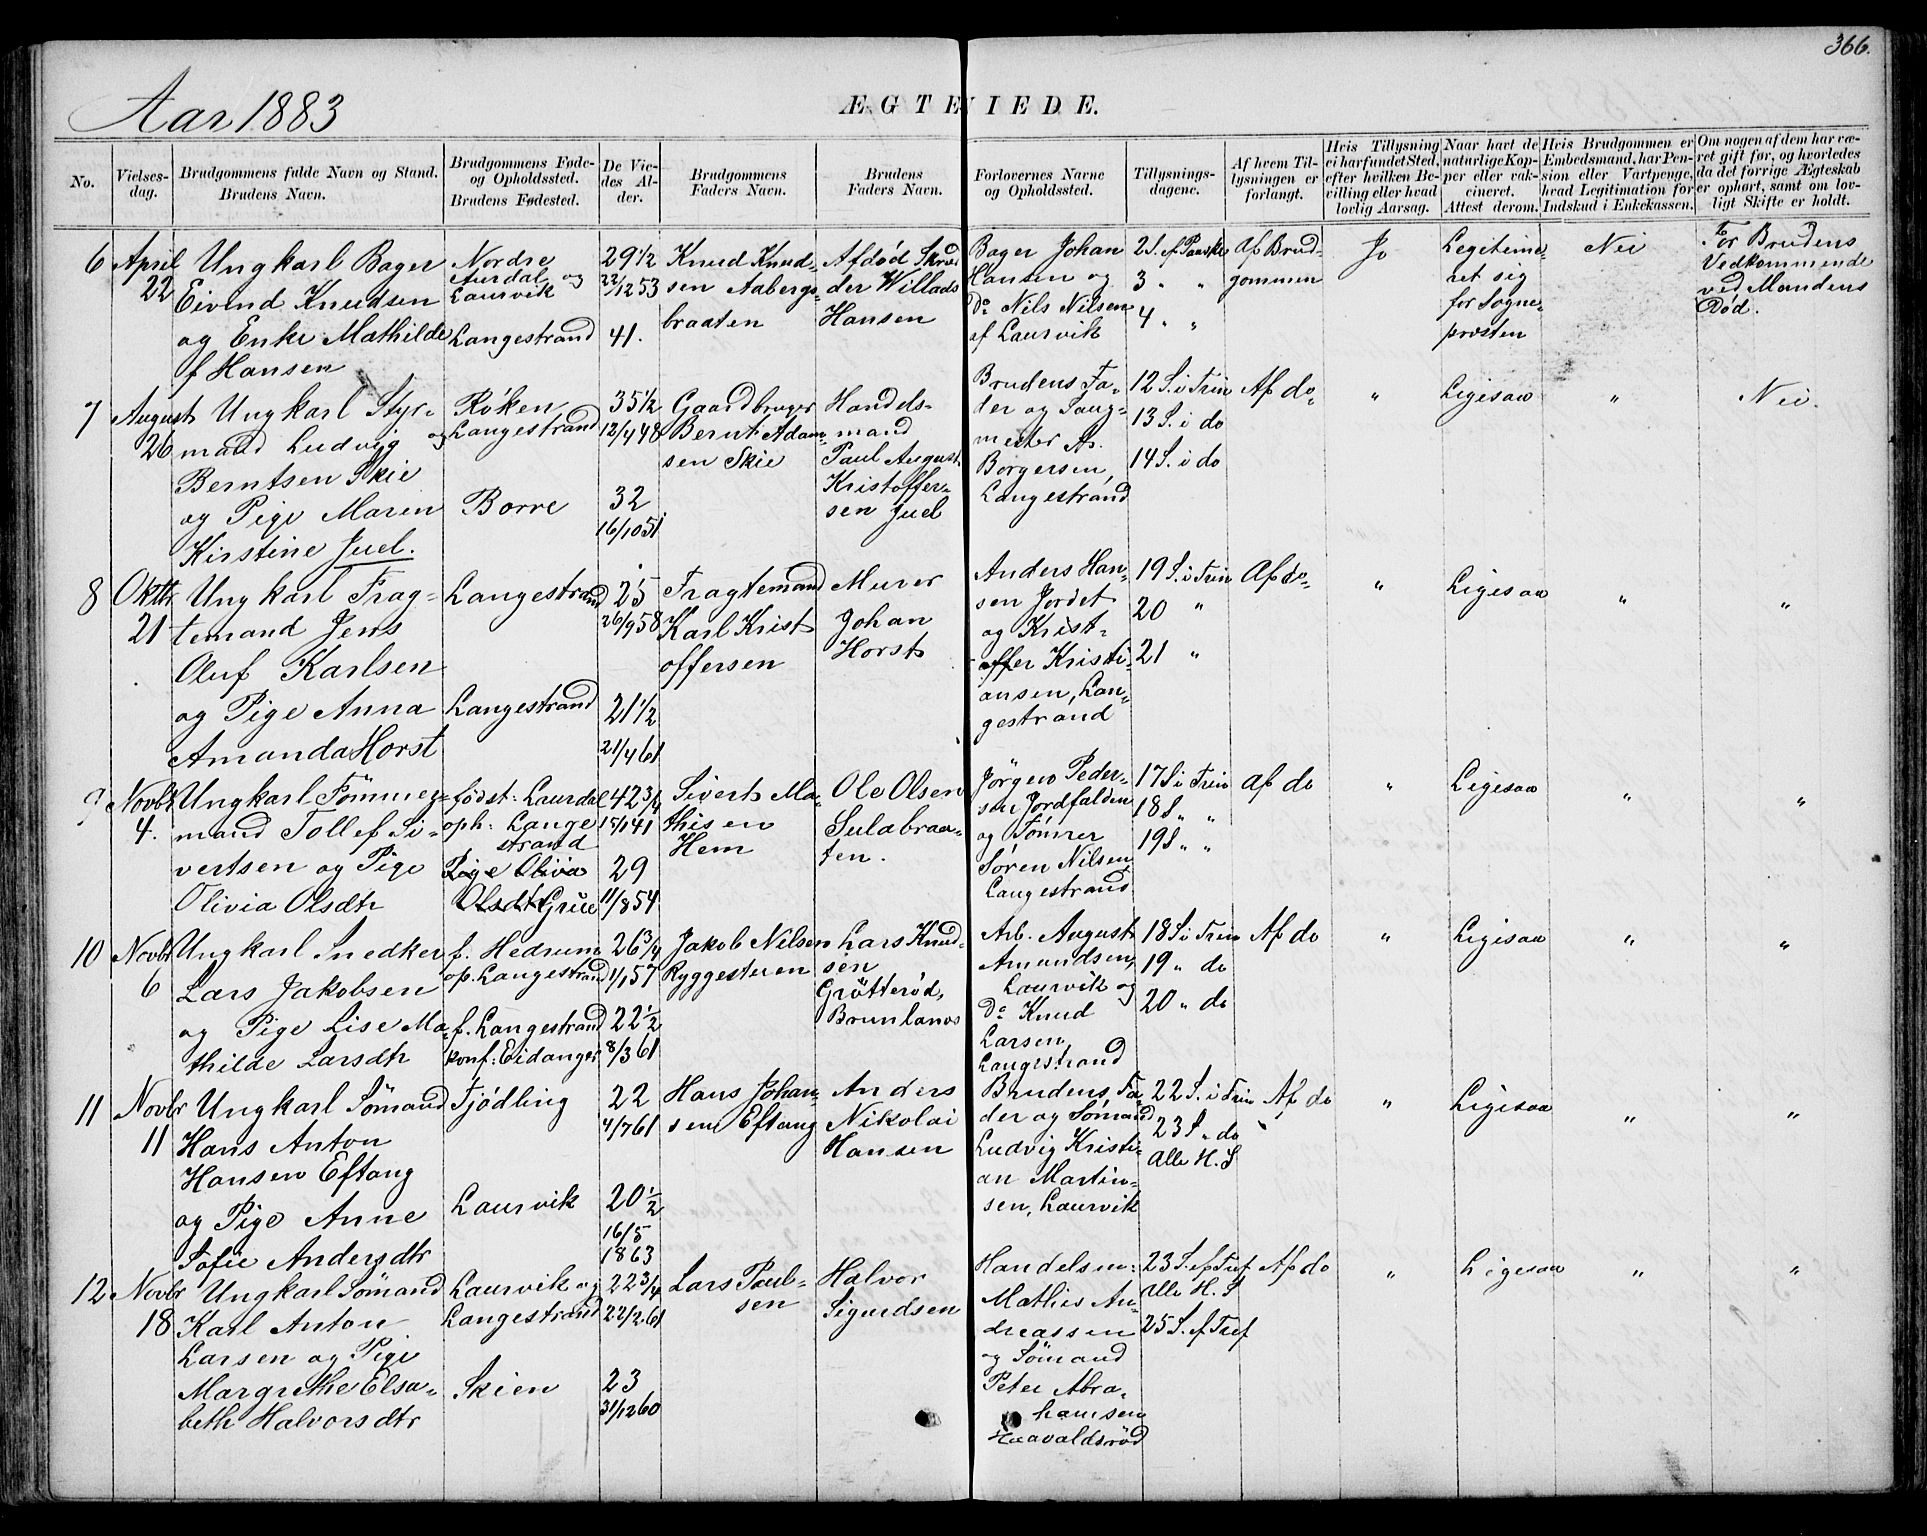 366.
Aar 1883
ÆGTEVIEDE.
No.
Vielses-
dag.
Brudgommens fulde Navn og Stand.
Brudens Navn.
Brudgommens Føde-
og Opholdssted.
Brudens Fødested.
De Vie-
des Al-
der.
Brudgommens
Faders Navn.
Brudens
Faders Navn.
Forlovernes Navne
og Opholdssted.
Tillysnings-
dagene.
Af hvem Til-
lysningen er
forlangt.
Hvis Tillysning
ei har fundet Sted,
efter hvilken Be-
villing eller hvad
lovlig Aarsag.
Naar havt de
naturlige Kop-
per eller vak-
cineret.
Attest derom.
Hvis Brudgommen er
Embedsmand, har Pen-
sion eller Vartpenge,
hvad Legitimation for
Indskud i Enkekassen.
Om nogen af dem har væ-
ret gift før, og hvorledes
da det forrige Ægteskab
er ophørt, samt om lov-
ligt Skifte er holdt.
6
April
22
Ungkarl Bager
Eivind Knudsen
og Enke Mathilde
f Hansen
Nordre
Aurdal og
Laurvik
Langestrand
29 1/2
22/12 53
41.
Knud Knud-
sen Aabergs-
braaten
Afdöd Skræd
der Willads
Hansen
Bager Johan
Hansen og
Do Nils Nilsen
af Laurvik
2 S. ef Paaske
3 " "
4 " "
Af Brud-
gommen
Jo
Legetime-
ret sig
for Sogne-
prosten
Nei
For Brudens
Vedkommende
ved Mandens
Död.
7
August
26
Ungkarl Styr-
mand Ludvig
Berntsen Skie
og Pige Maren
Kirstine Juel.
Röken
og Langestrand
Borre
35 1/2
12/4 48
32
16/10 51
Gaardbruger
Bernt Adam-
sen Skie
Handels-
mand
Paul August
Kristoffer-
sen Juel
Brudens Fa-
der og Taug-
mester A.
Borgersen,
Langestrand
12 S. i Trin
13 S. i do
14 S. i do
Af do
"
Ligesaa
"
Nei.
8
Oktbr
21
Ungkarl Frag-
temand Jens
Oluf Karlsen
og Pige Anna
Amanda Horst
Langestrand
Langestrand
25
26/9 58
21 1/2
21/4 61
Fragtemand
Karl Krist
offersen
Murer
Johan
Horst
Anders Han-
sen Jordet
og Krist-
offer Kristi-
ansen, Lan-
gestrand
19 S. i Trin
20 "
21 "
Af do
"
Ligesaa
"
"
9
Novbr
4.
Ungkarl Tömmer-
mand Tollef Si-
vertsen og Pige
Olivia Olsdtr
född: Laurdal
oph: Lange
strand
Pige Olivia
Olsdtr Grue
42 3/4
15/1 41
29
11/8 54
Sivert Ma-
thisen
Hem
Ole Olsen
Sulabraa-
ten.
Jörgen Peder-
sen Jordfalden
og Tömrer
Sören Nilsen
Langestrand
17 S i Trin
18 S " "
19 S " "
Af do
"
Ligesaa
"
"
10
Novbr
6
Ungkarl Snedker
Lars Jakobsen
og Pige Lise Ma-
thilde Larsdtr
f. Hedrum
op. Langestrand
f. Langestrand
konf: Eidanger
26 3/4
11/1 57
22 1/2
8/3 61
Jakob Nilsen
Ryggesteren
Lars Knud-
sen
Grötteröd,
Brunlanes
Arb. August
Amundsen,
Laurvik og
Do Knud
Larsen,
Langestrand
18 S i Trin
19 " do
20 " do
Af do
"
Ligesaa
"
"
11
Novbr
11
Ungkarl Sömand
Hans Anton
Hansen Eftang
og Pige Anne
Sofie Andersdtr
Tjödling
Laurvik
22
4/7 61
20 1/2
16/5
1863
Hans Johan-
sen Eftang
Anders
Nikolai
Hansen
Brudens Fa-
der og Sömand
Ludvig Kristi-
an Martin-
sen, Laurvik
22 S. i Trin
23 S " do
Alle H. S
Af do
"
Ligesaa
"
"
12
Novbr
18
Ungkarl Sömand
Karl Anton
Larsen og Pige
Margrethe Elsa-
beth Halvorsdtr
Laurvik og
Langestrand
Skien
22 3/4
22/2 61
23
31/12 60
Lars Paul-
sen
Halvor
Sigurdsen
Handelsm:
Mathis An-
dreassen
og Sömand
Peter Abra-
hamsen
Haavaldsröd
23 S. ef Tref
Alle H. S
25 S. ef Tref
Af do
"
Ligesaa
"
"